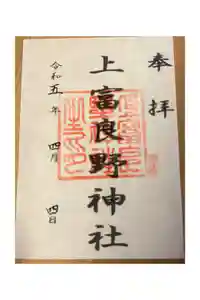 奉拝
上富良野神社
令和五年 四月 四日